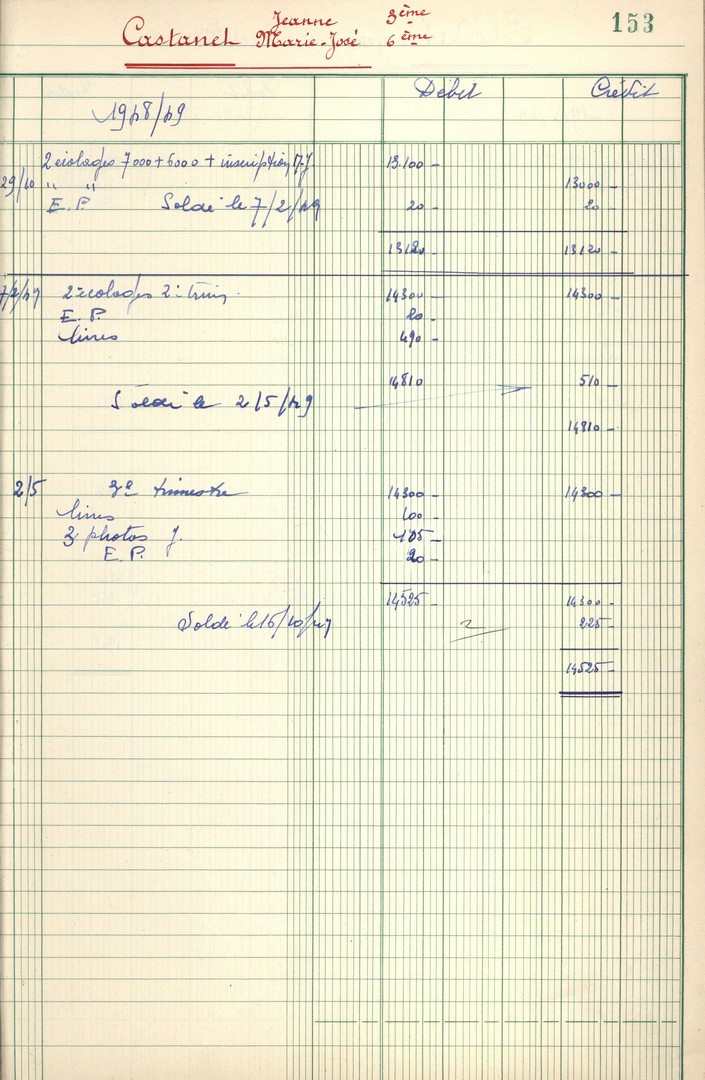 153
Castanet Jeanne 3ème
Marie-José 6ème
Débit Crédit
1948/49
2 écolages 7000+6000 + inscription 13.100 -
29/10 " " 13000 -
E.P. Soldé le 7/2/49 20 - 20 -
13120 - 13120 -
7/2/49 2 écolages 2e trim. 14300 - 14300 -
E.P. 20 -
livres 490 -
14810 510 -
Soldé le 2/5/49
14810 -
2/5 3e trimestre 14300 - 14300 -
livres 100 -
3 photos J. 105 -
E.P. 20 -
14525 - 14300 -
Soldé le 15/10/49 225 -
14525 -